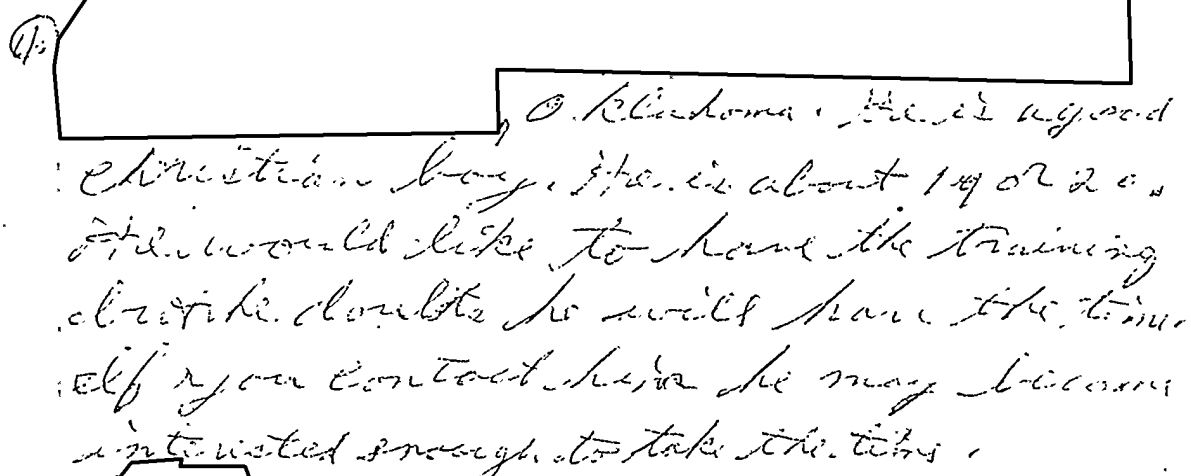 (1.)
, Oklahoma. He is a good
Christian boy. He is about 19 or 20.
He would like to have the training
but he doubts he will have the time.
If you contact him he may become
interested enough to take the time.